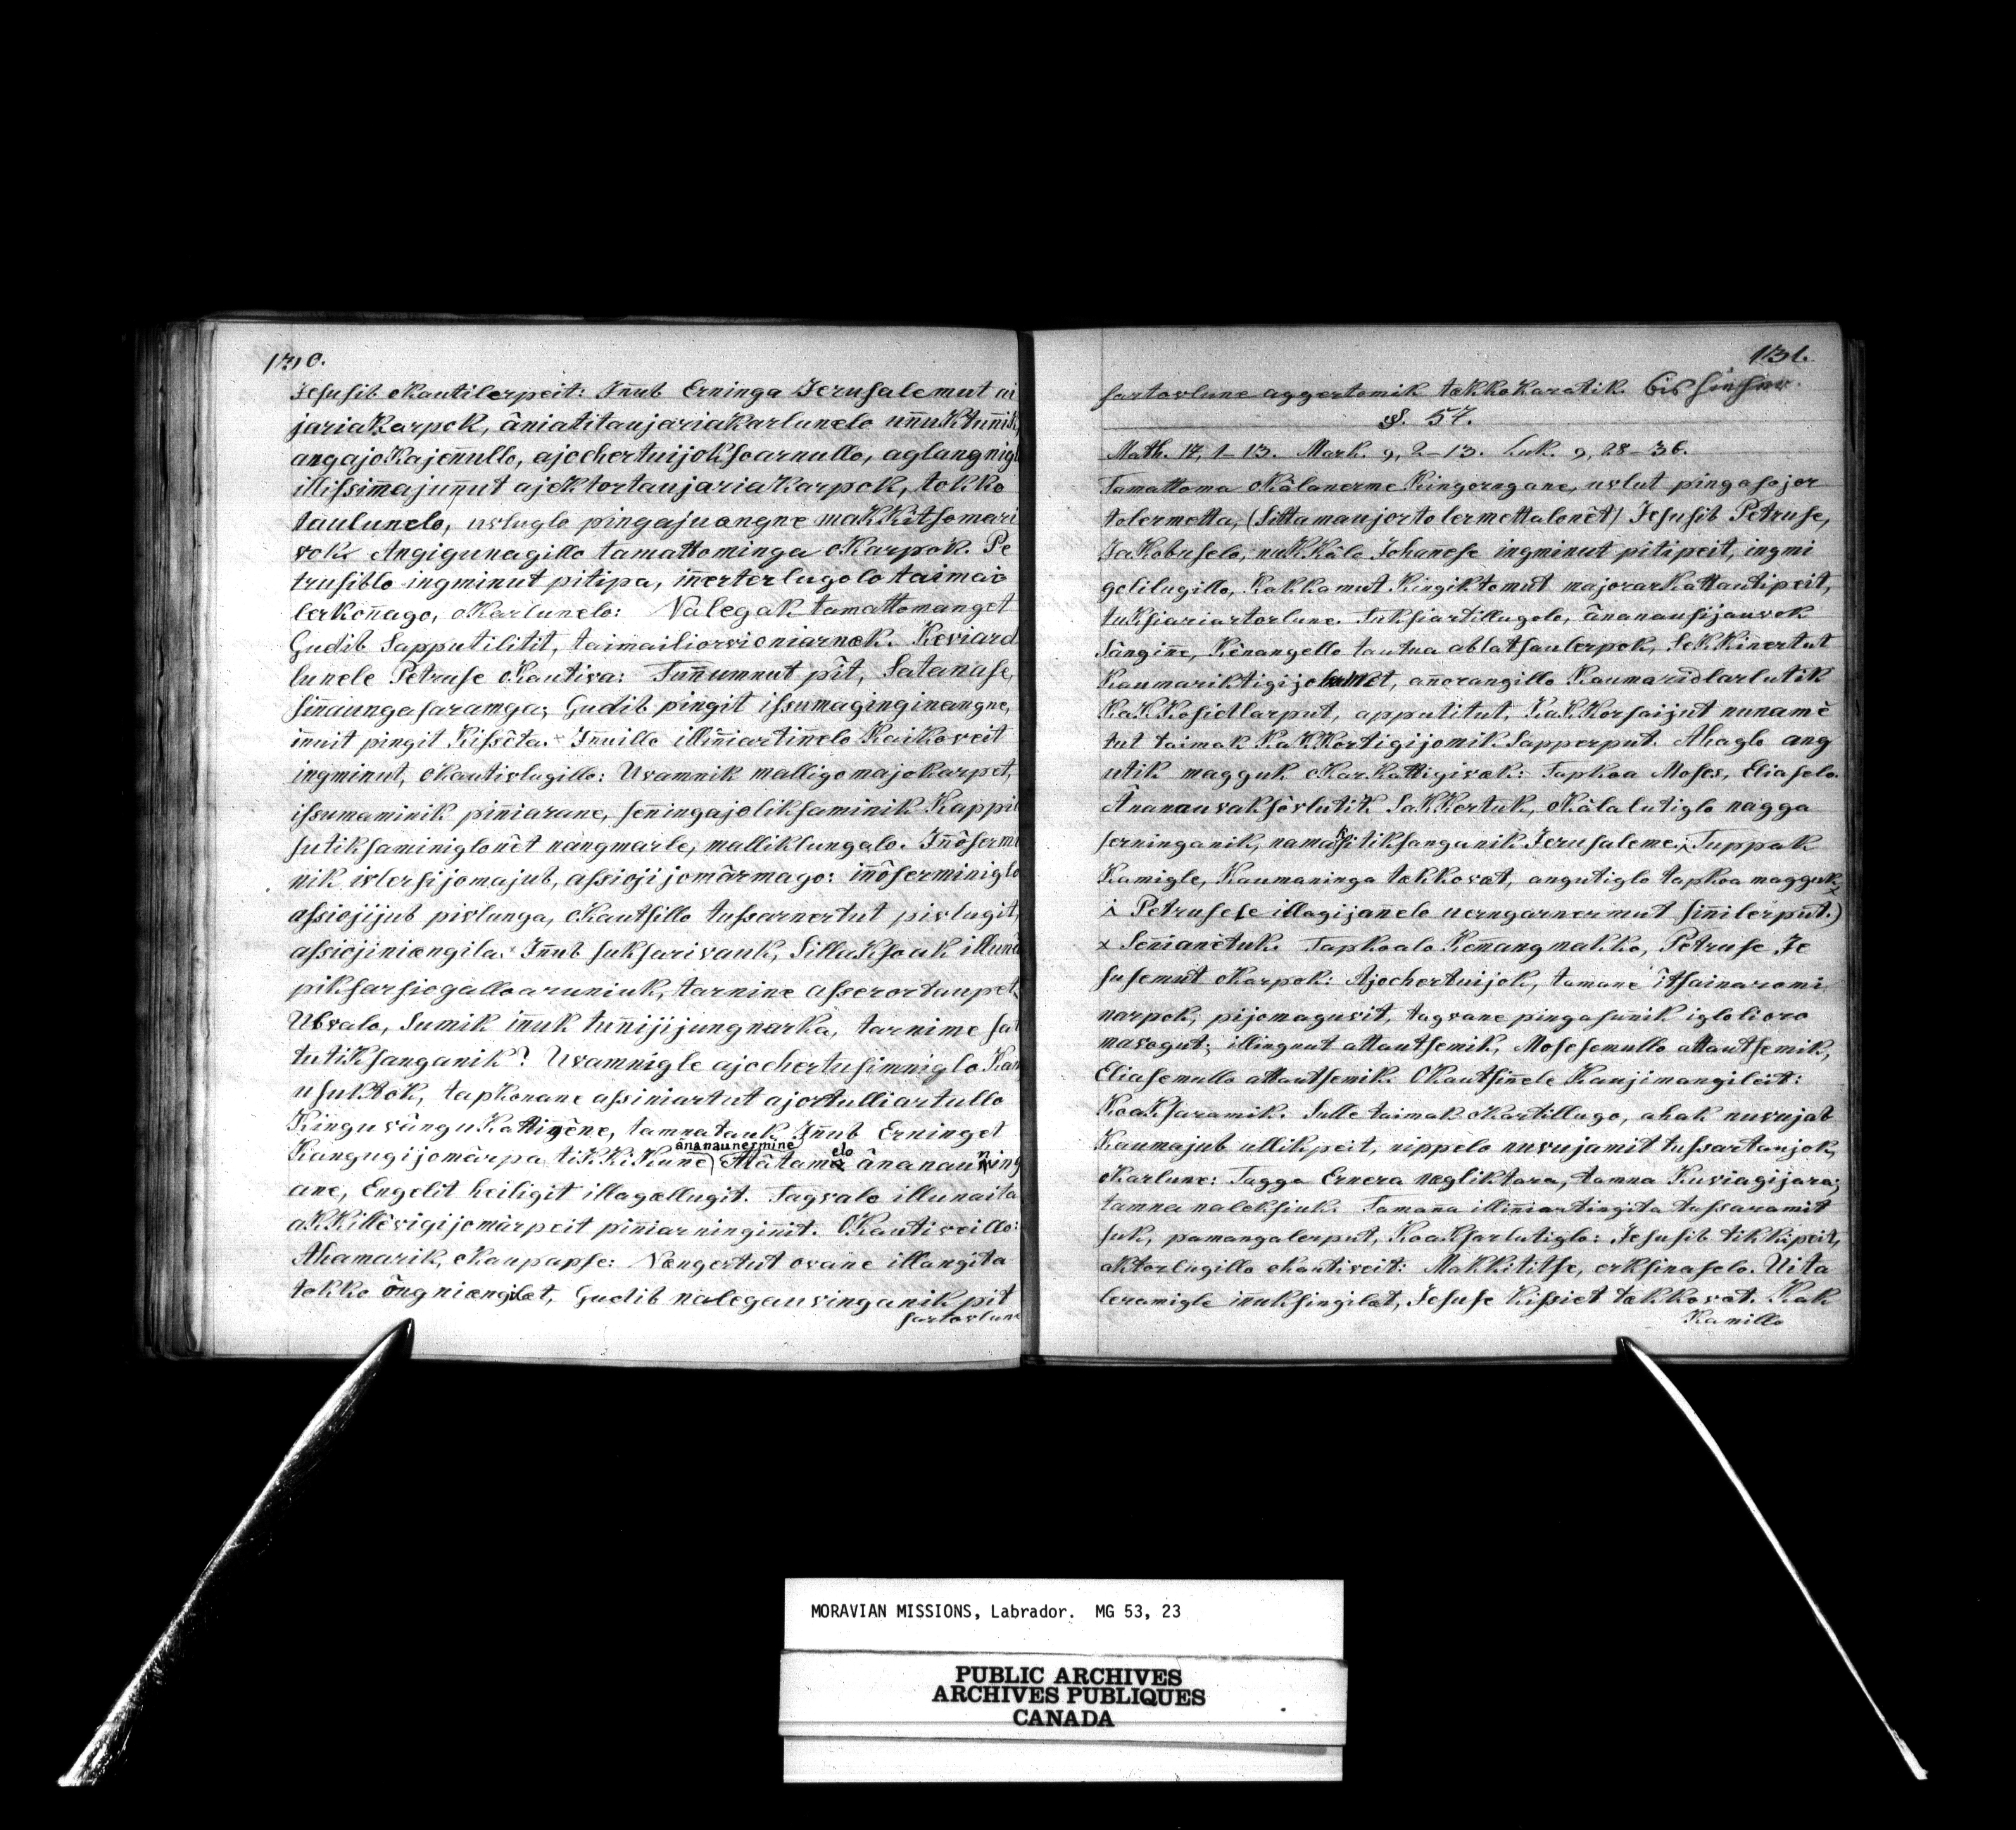 130.
Jesusib okautilerpeit: Inñub Erninga Jerusalemut ai
jariakarpok, âniatitaujariakarlunelo unñuktunñik,
angajoKajenullo, ajochertuijoksoarnullo, aglangnigl
illissimajunut ajektortaujariakarpok, tokko
taulunelo, uvluglo pingajuangne makkitsomari
vok. Angigunagillo tamattominga okarpok. Pe
trusiblo ingminut pitipa, inerterlugolo taimai
lerkonnago, okarlunelo: Nalegak tamattomanget
Gudib Sapputilitit, taimailiorvioniarnak. Keviard
lunele Petruse okautiva: Tunnumnut pît, Satanase,
sinaungasaramga; Gudib pingit issumaginginangne,
innuit pingit Kissêta. Innuillo illinniartinelo Kaikoveit
ingminut, okautivlugillo: Uvamnik malligomajokarpet,
issumaminik piniarane, senningajoliksaminik Kappi
sutiksaminiglonêt nangmarle, malliklungalo. Innôsermi
nik ivlersijomajub, assiojijomârmago: innôserminiglo
assiojijub pivlunga, okautsillo tussarnertut pivlugit,
assiojiniængila. Innub suksarivauk, Sillaksoak illuna
piksarsiogalloaruniuk, tarnine asserortaupet.
Ubvalo, sumik innuk tunnijijungnarka, tarnime sat
tutiksanganik? Uvamnigle ajochertusimniglo Kan
usuktok, tapkonane assiniartut ajortulliartullo
KinguvânguKattigêne, tamnatauk Innub Erninget
Kangugijomârpa tikkikune ânanaunermine Atâtamelo ânanauning
ane, Engelit heiligit illagællugit. Tagvalo illunaita
akkillêvigijomârpeit piniarninginit. Okautiveillo:
Ahamarik, okaupapse: Nængertut ovane illangita
tokko ôngniængilæt, Gudib nalegauvinganik pit
sartovlune
131.
sartovlune aggertomik tækkokaratik.
§. 57.
Math. 17, 1–13. Mark. 9, 2–13. Luk. 9, 28–36.
Tamattoma okâlanerme Kingorngane, uvlut pingasojor
tolermetta, (Sittamaujortolermettalonêt) Jesusib Petruse,
Jakobuselo, nukkâlo Johannese ingminut pitipeit, ingmi
golilugillo, Kakkamut Kingiktomut majorarkattautipeit,
tuksiariartorlune. Tuksiartillugolo, ânanausijauvok
sângine, Kênangello tautua ablatsaulerpok, Sekkinertut
Kaumariktigijo, annorangillo Kaumaridlarlutik
KaKKosiedlarput, apputitut, KaKKorsaijut nunamê
tut taimak KaKKortigijomik Sapperput. Ahaglo ang
utik magguk okarkattigivæk: Tapkoa Moses, Eliaselo.
Ânanauvaksêvlutik Sakkertuk, okâlalutiglo nagga
serninganik, Jerusaleme. Tuppak
Kamigle, Kaumaninga tækkovæt, angutiglo tapkoa magguk,
Petrusele illagijanelo uerngarnermut sinnilerput.)
x Sennianêtuk. Tapkoalo Kemangmakko, Petruse Je
susemut okarpok: Ajochertuijok, tamane itsainaromi
narpok, pijomaguvit, tagvane pingasunnik iglolioro
mavogut; illingnut attautsemik, Mosesemullo attautsemik,
Eliasemullo attautsemik. Okautsinele Kaujimangileit:
Koaksaramik. Sulle taimak okartillugo, ahak nuvujab
Kaumajub ullikpeit, nippelo nuvujamit tussartaujok,
okarlune: Tagga Ernera nægliktara, tamna Kuviagijara;
tamna naleksiuk. Tamanna illinniartingita tussaramit
suk, pamangalerput, Koaksarlutiglo: Jesusib tikkipeit,
aktorlugillo okautiveit: Makkititse, erksinaselo. Uita
leramigle innuksingilæt, Jesuse Kissiet tækkovæt. Kak
Kamillo
MORAVIAN MISSIONS, Labrador. MG 53, 23
PUBLIC ARCHIVES
ARCHIVES PUBLIQUES
CANADA